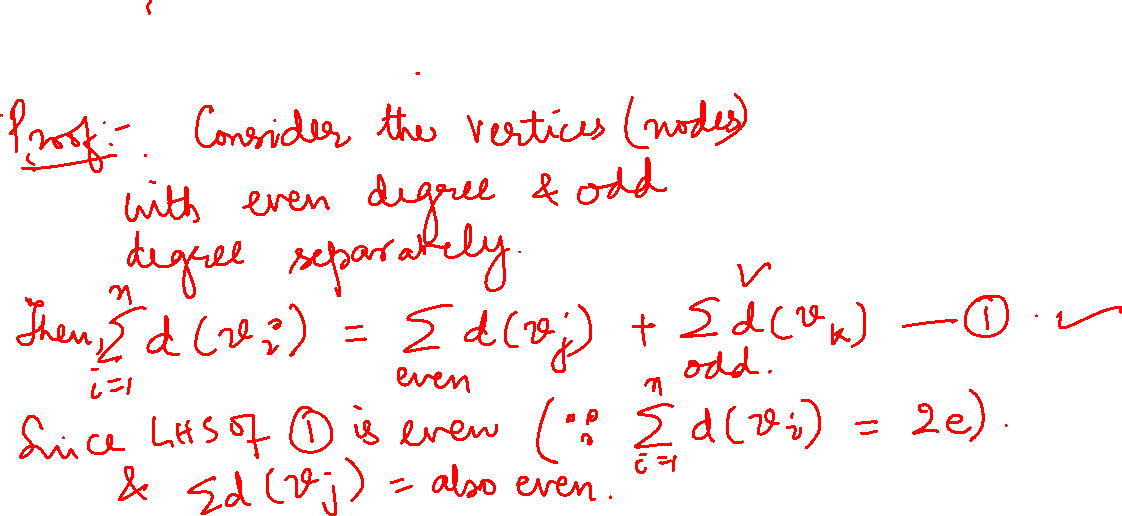 Proof:- Consider the vertices (nodes)
with even degree & odd
degree separately.
Then, ∑_{i=1}^{n} d(v_i) = ∑_{even} d(v_j) + ∑_{odd.} d(v_k) — ① . ✓
Since LHS of ① is even (∵ ∑_{i=1}^{n} d(v_i) = 2e).
& ∑d(v_j) = also even.